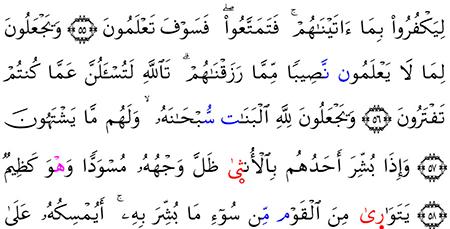 لِيَكْفُرُواْ بِمَا ءَاتَيْنَٰهُمْ ۚ فَتَمَتَّعُواْ ۖ فَسَوْفَ تَعْلَمُونَ ۝٥٥ وَيَجْعَلُونَ
لِمَا لَا يَعْلَمُون نَّصِيبًا مِّمَّا رَزَقْنَٰهُمْ ۗ تَاللَّهِ لَتُسْـَٔلُنَّ عَمَّا كُنتُمْ
تَفْتَرُونَ ۝٥٦ وَيَجْعَلُونَ لِلَّهِ الْبَنَٰت سُّبْحَٰنَهُۥ ۙ وَلَهُم مَّا يَشْتَهُونَ
۝٥٧ وَإِذَا بُشِّرَ أَحَدُهُم بِالْأُنثِىٰ ظَلَّ وَجْهُهُۥ مُسْوَدًّا وَهْوَ كَظِيمٌ
۝٥٨ يَتَوَٰرِىٰ مِنَ الْقَوْم مِّن سُوٓءِ مَا بُشِّرَ بِهِۦٓ ۚ أَيُمْسِكُهُۥ عَلَىٰ